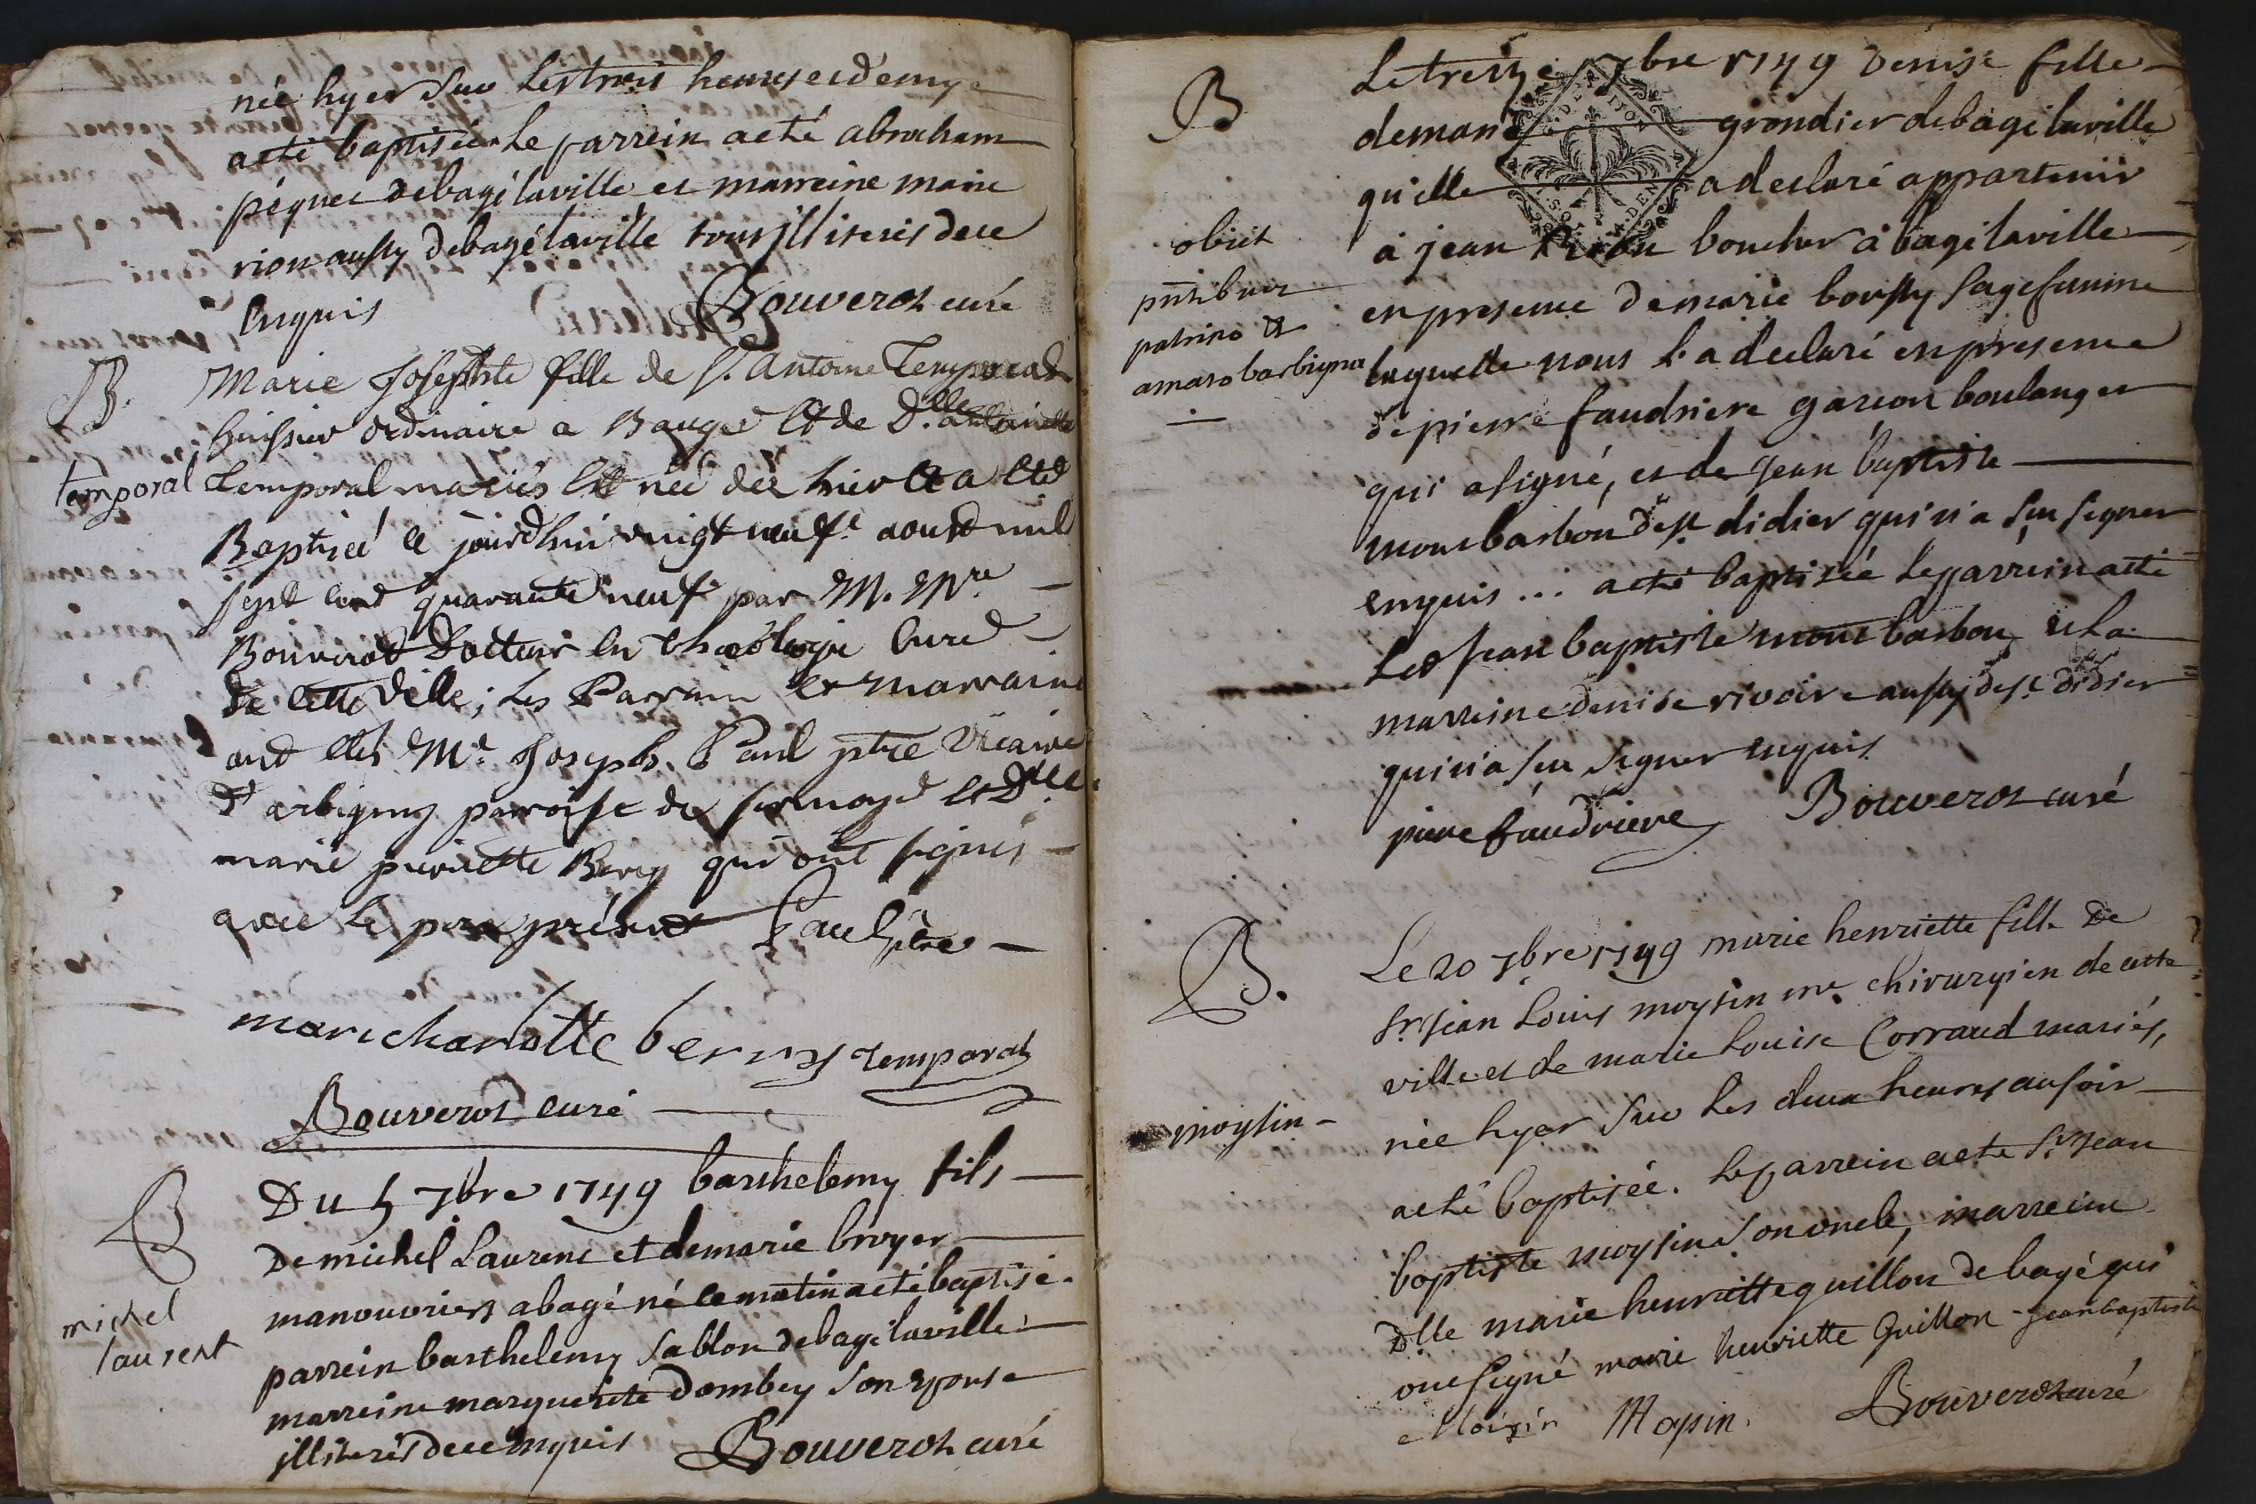 née hyer sur les trois heures et demy
a eté baptisée. Le parrein a eté abraham
péquet de bagé la ville et marreine marie
rion aussy de bagé la ville tous illiterés de ce
enquis Bouverot curé
B.
temporal
Marie Josephte fille de Sr. Antoine Temporal
huissier ordinaire a Baugé Et de Dlle
temporal mariés Est née dès hier Et a Eté
Baptisée ce jourdhui vingt neufe aoust mil
sept cent quarante neufe par M. Mre
Bouverot Docteur En théologie Curé
de cette Ville; Les Parrain et marraine
ont Etés Mr. Joseph Paul ptre Vicaire
d'arbigny parroisse de sermoyé et Dlle.
marie pierrette Berry qui ont signés
avec le pere présent Paul ptre
marie charlotte berry Temporal
Bouverot curé
B
michel
laurent
Du 5 7bre 1749 barthelemy fils
De michel Laurent et de marie broyer
manouvriers a bagé né ce matin a eté baptisé.
parrein barthelemy sablon de bagé la ville
marreine marguerite dombey son epouse
illiterés de ce enquis Bouverot curé
B
obiit
pntibus
patrino &
amaro barbigna
Le treize 7bre 1749 Denise fille
de grondier de bagé la ville
qu'elle a declaré appartenir
à jean boucher à bagé la ville
en presence de marie boussy sagefemme
laquelle nous l'a declaré en presence
de pierre faudriere garçon boulanger
qui a signé, et de jean baptiste
montbarbon de st didier qui n'a sçu signer
enquis ... a eté baptisée le parrein a eté
Led jean baptiste montbarbon et la
marreine denise rivoire aussy de st didier
qui n'a sçu signer enquis.
piere faudriere Bouverot curé
B.
moysin
Le 20 7bre 1749 marie henriette fille de
sr. jean Louis moysin me chirurgien de cette
ville et de marie Louise Corraud mariés,
née hyer sur les deux heures au soir
a eté baptisée. Le parrein a eté sr. jean
baptiste moysin son oncle, marreine
Dlle marie henriette guillon de bagé qui
ont signé marie henriette Guillon jean baptiste
Moisin Mopin. Bouverot curé